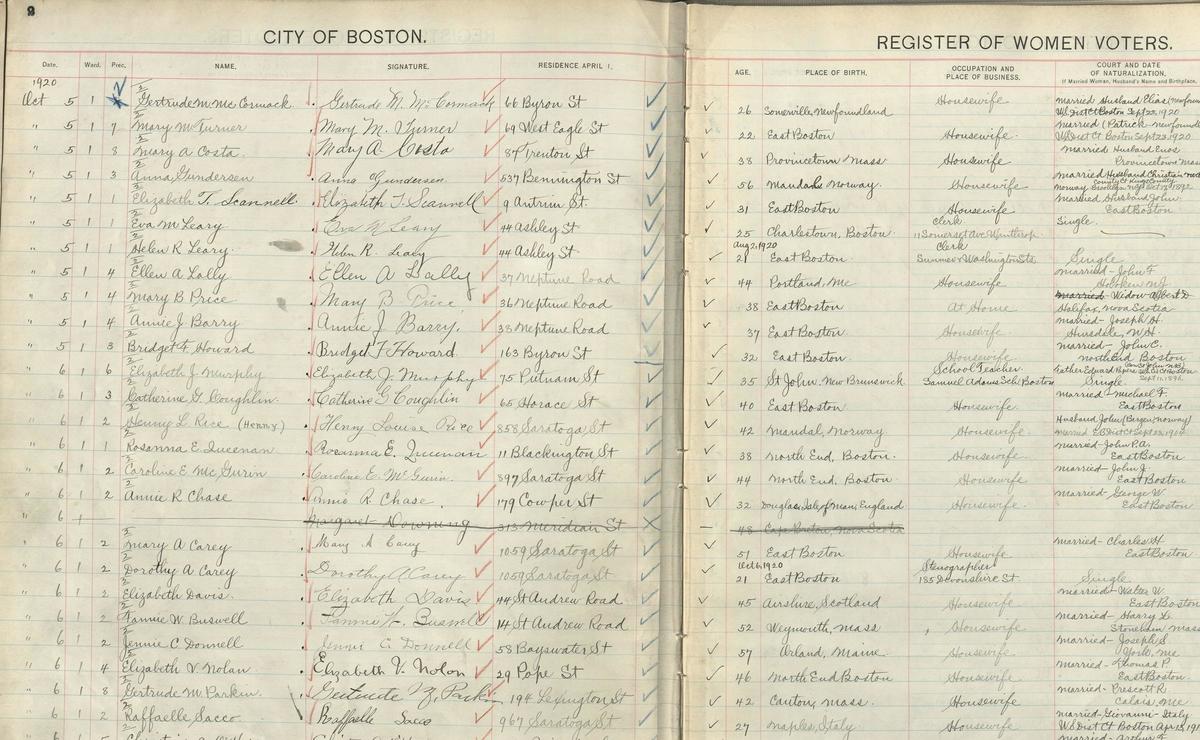 2
CITY OF BOSTON.
Date. Ward. Prec. NAME. SIGNATURE. RESIDENCE APRIL 1.
1920
Oct 5 1 2 Gertrude M. McCormack Gertrude M. McCormack 66 Byron St
" 5 1 7 Mary M Turner Mary M. Turner 69 West Eagle St
" 5 1 8 Mary A Costa. Mary A. Costa 87 Trenton St
" 5 1 3 Anna Gundersen Anna Gundersen 537 Bennington St
" 5 1 1 Elizabeth T. Scannell Elizabeth T Scannell 9 Antrim St.
" 5 1 1 Eva M Leary Eva M Leary 44 Ashley St
" 5 1 1 Helen R. Leary Helen R. Leary 44 Ashley St
" 5 1 4 Ellen A Lally Ellen A Lally 37 Neptune Road
" 5 1 4 Mary B Price Mary B Price 36 Neptune Road
" 5 1 4 Annie J Barry Annie J Barry. 38 Neptune Road
" 5 1 3 Bridget F. Howard Bridget F Howard 163 Byron St
" 6 1 6 Elizabeth J. Murphy Elizabeth J Murphy 75 Putnam St
" 6 1 3 Catherine G. Coughlin Catherine G Coughlin 65 Horace St
" 6 1 2 Henny L Rice (Henny.) Henny Louise Rice 858 Saratoga St
" 6 1 1 Rosanna E. Queenan Rosanna E. Queenan 11 Blackington St
" 6 1 2 Caroline E. McGurin Caroline E. McGurin. 897 Saratoga St
" 6 1 2 Annie R Chase Annie R. Chase. 179 Cowper St
" 6 1 Margaret Downing 313 Meridian St
" 6 1 2 Mary A Carey Mary A Carey 1059 Saratoga St
" 6 1 2 Dorothy A Carey Dorothy A Carey 1059 Saratoga St
" 6 1 2 Elizabeth Davis. Elizabeth Davis 44 St Andrew Road
" 6 1 2 Fannie W. Buswell Fannie W. Buswell 14 St Andrew Road
" 6 1 2 Jennie C Donnell Jennie C Donnell 58 Bayswater St
" 6 1 4 Elizabeth V. Nolan Elizabeth V. Nolan 29 Pope St
" 6 1 8 Gertrude M Parkin. Gertrude M Parkin 194 Lexington St
" 6 1 2 Raffaelle Sacco Raffaelle Sacco 967 Saratoga St
REGISTER OF WOMEN VOTERS.
AGE. PLACE OF BIRTH. OCCUPATION AND PLACE OF BUSINESS. COURT AND DATE OF NATURALIZATION.
If Married Woman, Husband's Name and Birthplace.
26 Somerville, Newfoundland Housewife married Husband Elias
U.S. Dist Ct Boston Sept 23, 1920
22 East Boston Housewife married (Patrick
U.S. Dist Ct Boston Sept 23, 1920
38 Provincetown Mass Housewife married Husband Enos
Provincetown Mass
56 Mandal Norway. Housewife married Husband Christian
Norway
31 East Boston Housewife married Husband John
East Boston
25 Charlestown, Boston. Clerk 11 Somerset Ave Winthrop Single.
Aug 2, 1920
21 East Boston Clerk Summer & Washington Sts Single
44 Portland, Me Housewife married - John F
Hoboken N.J
38 East Boston At Home married - Widow - Albert D
Halifax, Nova Scotia
37 East Boston Housewife married - Joseph H.
Hinsdale, N.H.
32 East Boston. Housewife married - John C.
North End Boston
35 St John, New Brunswick School Teacher Samuel Adams Sch. Boston Father Edward
Single. Sept 11, 1892
40 East Boston Housewife married - Michael F.
East Boston
42 Mandal, Norway Housewife. Husband John (Bergen Norway)
38 North End, Boston. Housewife. married - John P.A.
East Boston
44 North End, Boston Housewife married - John J.
East Boston
32 Douglas, Isle of Man, England Housewife. married - George W.
East Boston
48 Cape Breton, Nova Scotia
51 East Boston Housewife married - Charles H
East Boston
Oct 6, 1920
21 East Boston Stenographer 185 Devonshire St. Single.
45 Ayrshire, Scotland Housewife. married - Walter W.
East Boston
52 Weymouth, Mass Housewife married - Harry L.
Stoneham Mass
57 Orland, Maine Housewife. married - Joseph S
York, Me
46 North End Boston Housewife. married - Thomas P.
East Boston
42 Canton, Mass. Housewife. married - Prescott R
Calais, Me
27 Naples, Italy Housewife. married - Giovanni - Italy
U.S. Dist Ct Boston